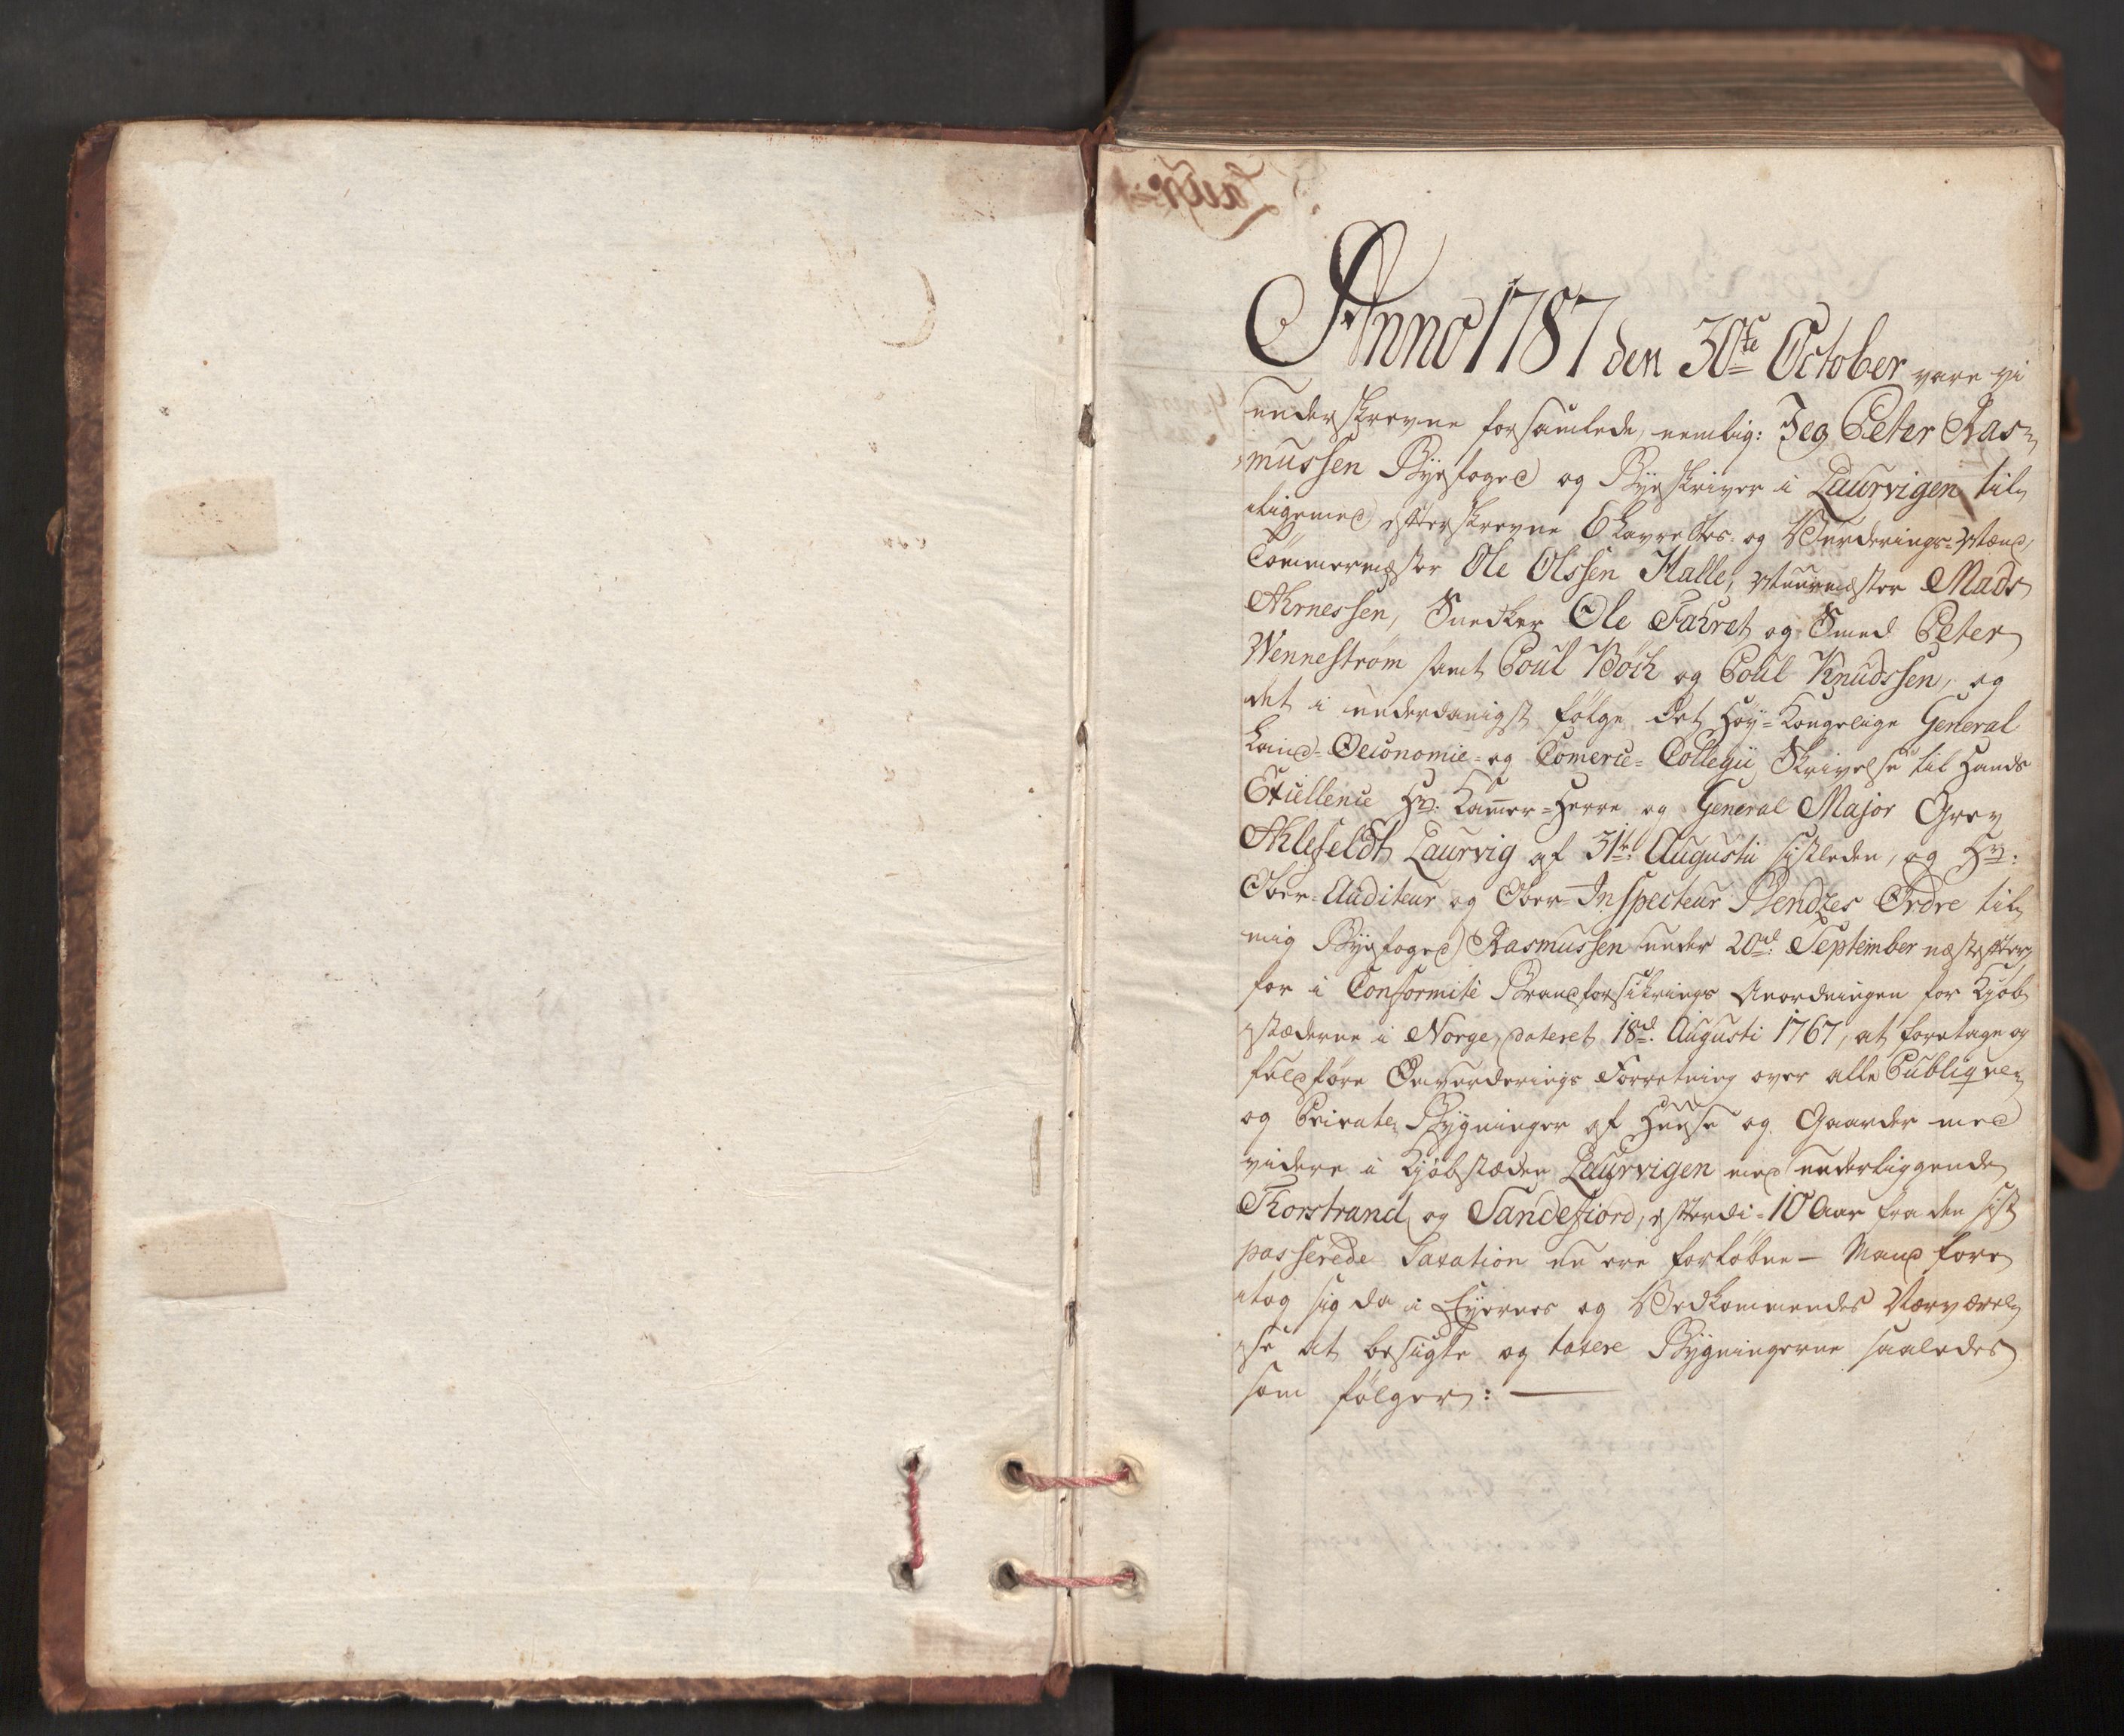 Anno 1787 den 30te October vare vi
underskrevne forsamlede, nemlig: Jeg Peter Ras-
mussen Byefoged og Byeskriver i Laurvigen til-
ligemed efterskrevne Ehavrettes og Vurderings-Mænd,
Tömmermester Ole Olssen Halle, Muurmester Mads
Ahrnessen, Snedker Ole Fahret og Smed Peter
Wennestrøm samt Poul Böck og Poul Knudssen, og
det i underdanigst fölge det Höy-Kongelige General
Land-Oeconomie- og Comerce-Collegii Skrivelse til Hands
Excellence Hr. Kamer-Herre og General Major Grev
Ahlefeldt Laurvig af 31te Augusti sistleden, og Hr:
Ober-Auditeur og Ober-Inspecteur Bendzes Ordre til
mig Byefoged Rasmussen under 20de September næstefter,
for i Conformité Brandforsikrings Anordningen for Kjöb-
stæderne i Norge, dateret 18de Augusti 1767, at foretage og
fuldføre Omvurderings Forretning over alle Publique
og Private Bygninger af Huuse og Gaarder med
videre i Kjöbstæden Laurvigen med underliggende
Thorstrand og Sandefiord, efterdi 10 Aar fra den sist
passerede Taxation nu ere forløbne — Mand fore-
tog sig da i Eyernes og Vedkommendes Nærværel-
se at besigte og taxere Bygningerne saaledes
som fölger: —